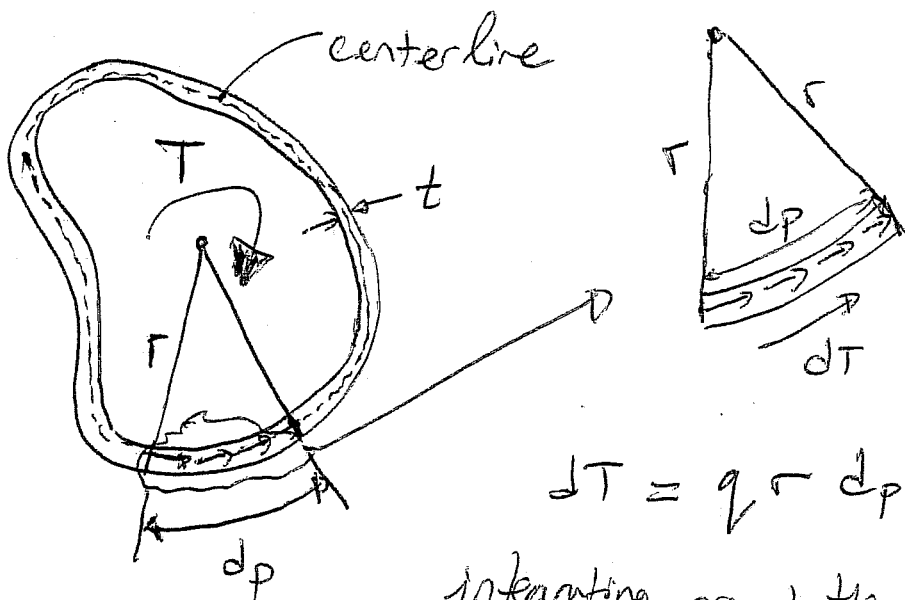 centerline
T
t
r
dp
r
r
dp
dT
dT = q r dp
integrating